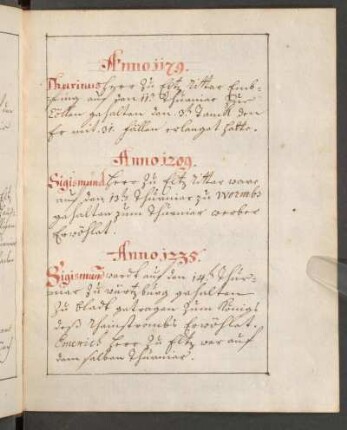 Anno 1179.
Thurinus Herr zu Eltz Ritter
auf den 11t Thurnier
Cöllen gehalten den 3t Danck den
Er mit 31. fällen erlangt hatte.
Anno 1209.
Sigismund Herr zu Eltz Ritter ware
auf den 13t Thurnier zu Wormbs
gehalten zum Thurnier werber
Erwöhlet.
Anno 1235.
Sigismund wardt auf den 14t Thur-
nier zu Würtzburg gehalten
zu bladt getragen zum Königs
deß Rheinstrombs Erwöhlet.
Emerich Herr zu Eltz war auf
dem selben Thurnier.